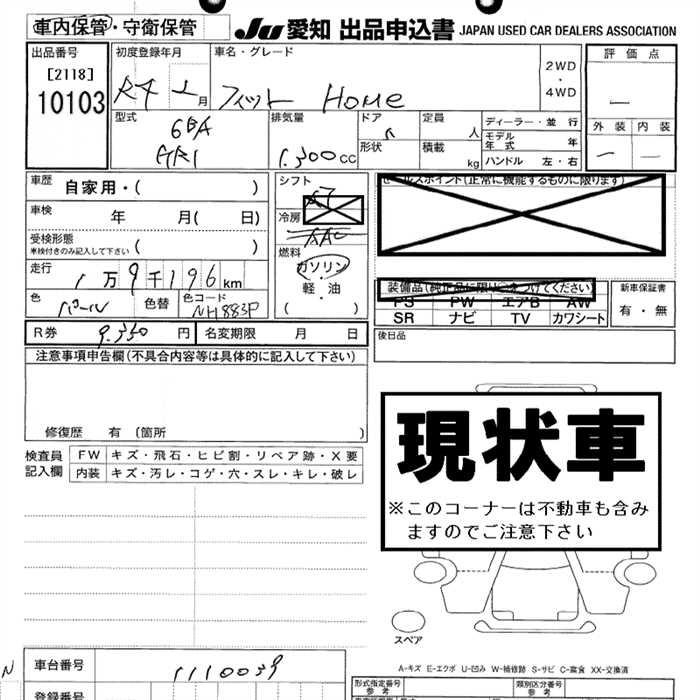 車内保管・守衛保管 JU 愛知 出品申込書 JAPAN USED CAR DEALERS ASSOCIATION
出品番号 初度登録年月 車名・グレード 2WD・4WD 評価点
[2118] R4 月 フィット HOME
10103
型式 6BA GR1 排気量 1.300cc ドア 定員 人 ディーラー・並行
形状 積載 kg モデル年式 年
ハンドル 左・右
外装 内装
車歴 自家用・( ) シフト セールスポイント(正常に機能するものに限ります)
車検 年 月( ) 冷房 AAC
受検形態 ※検付きのみ記入して下さい ( ) 燃料 ガソリン・軽・油 ( )
走行 1万9千196km 装備品(純正品に限り○をつけてください) 新車保証書
色 パール 色替 色コード NH883P PS PW エアB AW 有・無
SR ナビ TV カワシート
R券 9.350円 名変期限 月 日 後日品
注意事項申告欄(不具合内容等は具体的に記入して下さい)
修復歴 有 (箇所 )
検査員記入欄 FW キズ・飛石・ヒビ割・リペア跡・X要
内装 キズ・汚レ・コゲ・穴・スレ・キレ・破レ
現状車
※このコーナーは不動車も含み
ますのでご注意下さい
スペア
A-キズ E-エクボ U-凹み W-補修跡 S-サビ C-腐食 XX-交換済
N 車台番号 1110039 形式指定番号 参考 類別区分番号 参考
登録番号